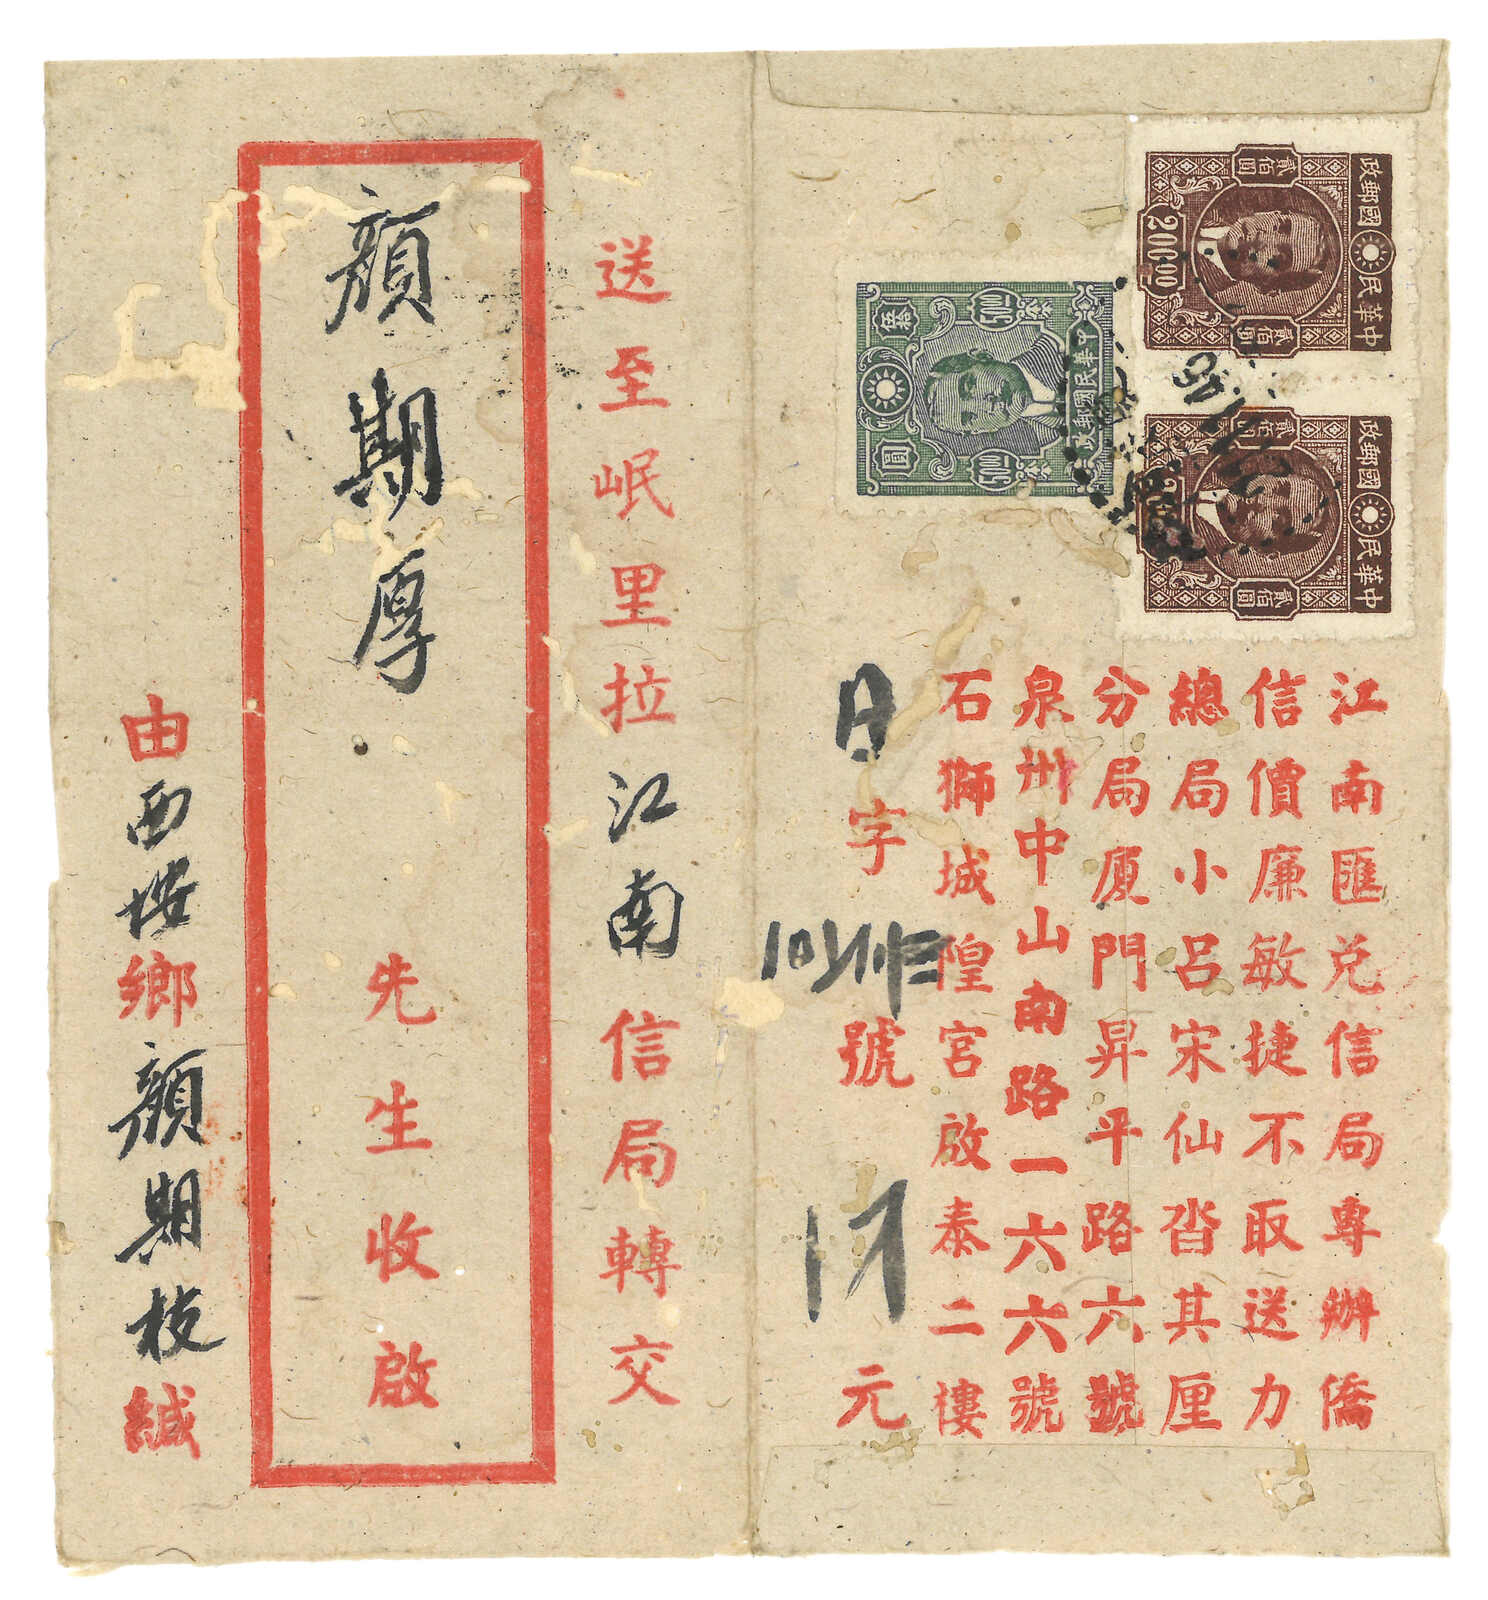 中華民國郵政
貳佰圓
貳佰圓
200 00
中華民國郵政
貳佰圓
貳佰圓
中華民國郵政
伍拾
圓
50 00
50 00
江南匯兌信局專辦僑
信價廉敏捷不取送力
總局小呂宋仙沓其厘
分局厦門昇平路六六號
泉州中山南路一六六號
石獅城隍宮啟泰二樓
字
號
元
送至岷里拉江南信局轉交
顏期厚 先生收啟
由西墩鄉顏期枝緘